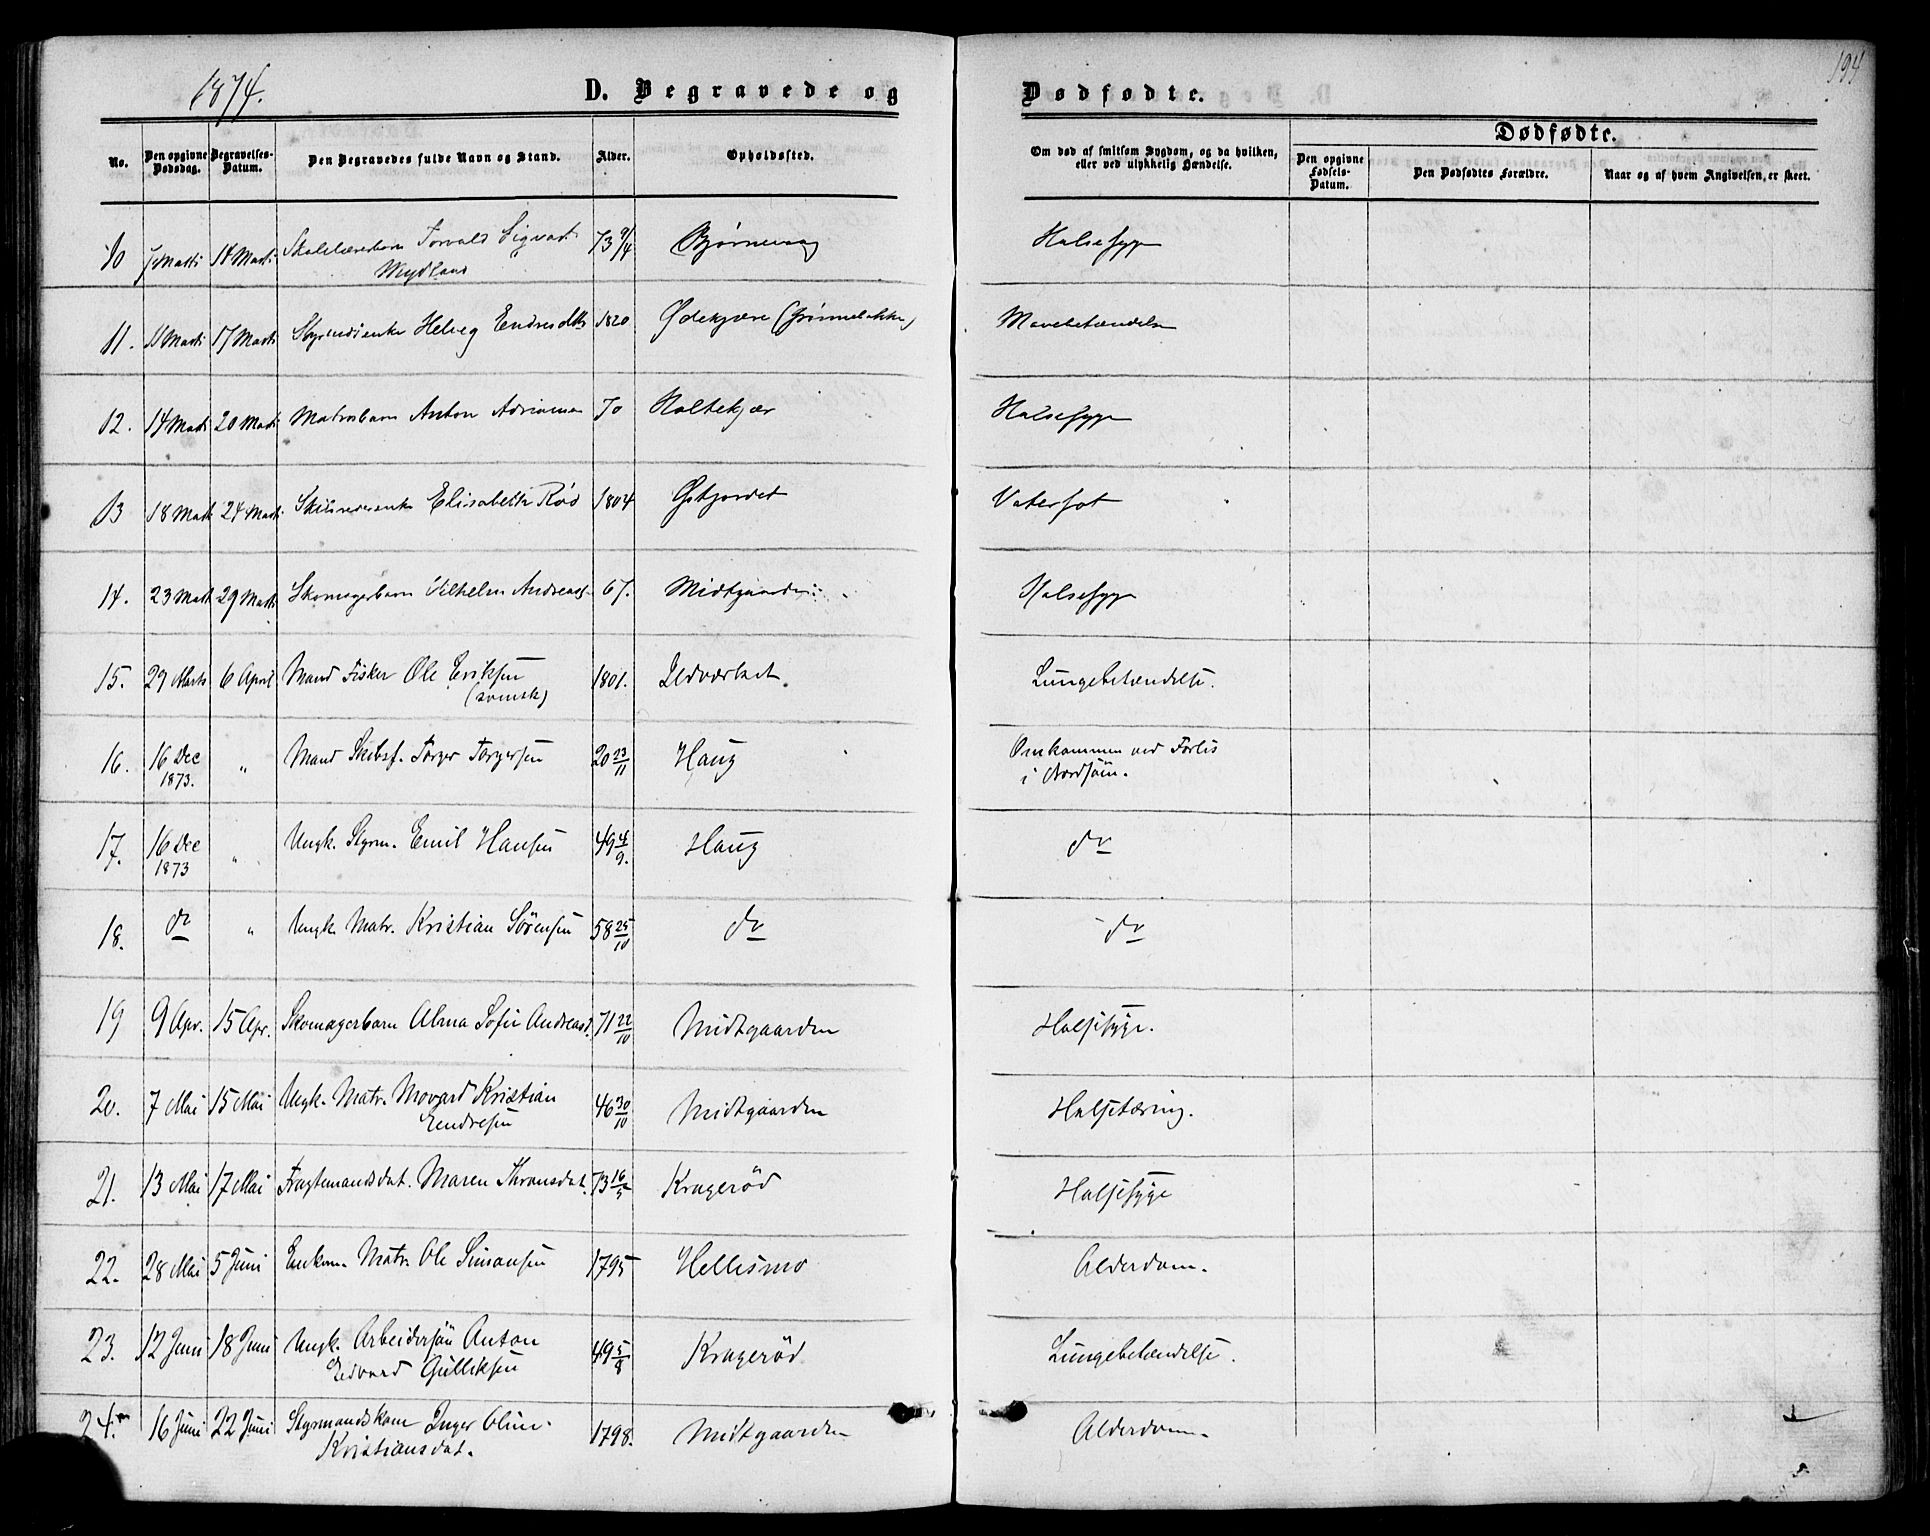 1874.
D. Begravede og Dødfødte.
194
Dødfødte.
No.
Den opgivne Dødsdag.
Begravelses-Datum.
Den Begravedes fulde Navn og Stand.
Alder.
Opholdssted.
Om død af smitsom Sygdom, og da hvilken, eller ved ulykkelig Hændelse.
Den opgivne Fødsels-Datum.
Den Dødfødtes Forældre.
Naar og af hvem Angivelsen, er skeet.
10 7 Marts 14 Marts Torvald Sigvart 73 9/4 Halsesyge
11. 11 Marts 17 Marts Helvig Endresdtr 1820 Ødekjære Mavebetændelse
12. 14 Marts 20 Marts Matrosbarn Anton Adriansen 70 Holtekjær Halsesyge
13 18 Marts 24 Marts Elisabeth Röd 1804 Østjordet Vatersot
14. 23 Marts 29 Marts Skomagerbarn Vilhelm Andreass. 67. Midtgaarden Halsesyge
15. 29 Marts 6 April Mand Fisker Ole Eriksen 1801. Lungebetændelse.
(svensk)
16. 16 Dec " Mand Skibsf. Torger Torgersen 20 23/11 Haug Omkommen ved Forlis
1873. i Nordsöen.
17. 16 Dec " Ungk. Styrm. Emil Hansen 49 4/9. Haug do
1873
18. do " Ungk Matr. Kristian Sörensen 58 25/10 do do
19 9 Apr. 15 Apr. Skomagerbarn Alma Sofie Andreasd. 71 22/10 Midtgaarden Halsesyge.
20. 7 Mai 15 Mai Ungk. Matr. Kristian 46 30/10 Midtgaarden Halsetæring.
Endresen
21. 13 Mai 17 Mai Fragtemandsdat. Maren 73 16/5 Krageröd Halsesyge
22. 28 Mai 5 Juni Enkem. Matr. Ole Simonsen 1795 Hellesmo Alderdom.
23. 12 Juni 18 Juni Ungk. Arbeidersön Anton 49 5/8 Krageröd Lungebetændelse.
Edvard Gulliksen
24. 16 Juni 22 Juni Styrmandskone Inger Oline 1798. Midtgaarden Alderdom.
Kristiansdat.